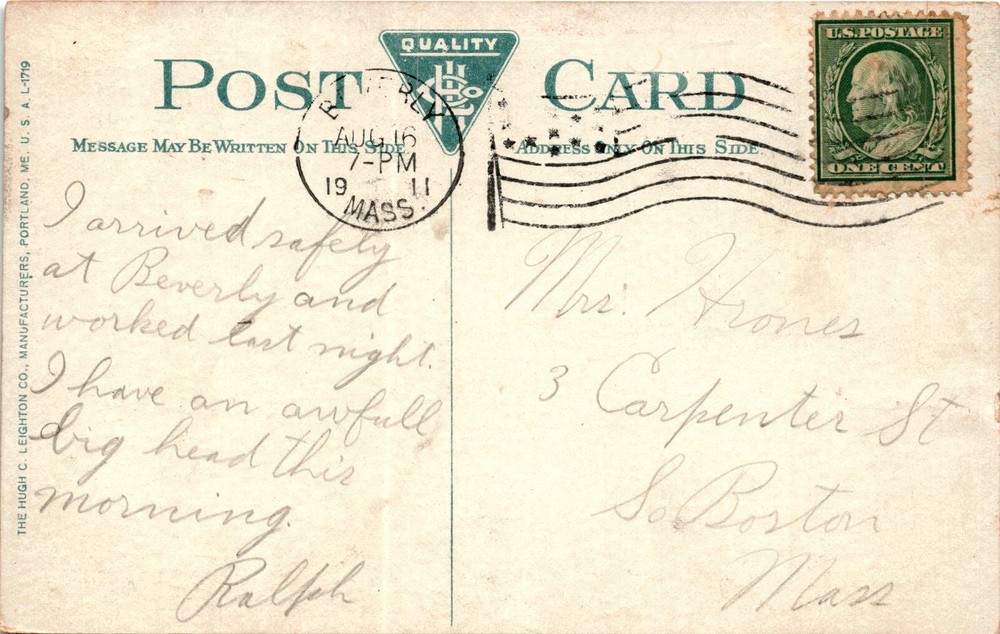 POST CARD
QUALITY
MESSAGE MAY BE WRITTEN ON THIS SIDE
ADDRESS ONLY ON THIS SIDE
U.S. POSTAGE
ONE CENT
BEVERLY
AUG 16
7-PM
19 11
MASS.
THE HUGH C. LEIGHTON CO., MANUFACTURERS, PORTLAND, ME. U. S. A. L-1719
I arrived safely
at Beverly and
worked last night.
I have an awfull
big head this
morning.
Ralph
Mrs. Hrones
3 Carpenter St
So Boston
Mass